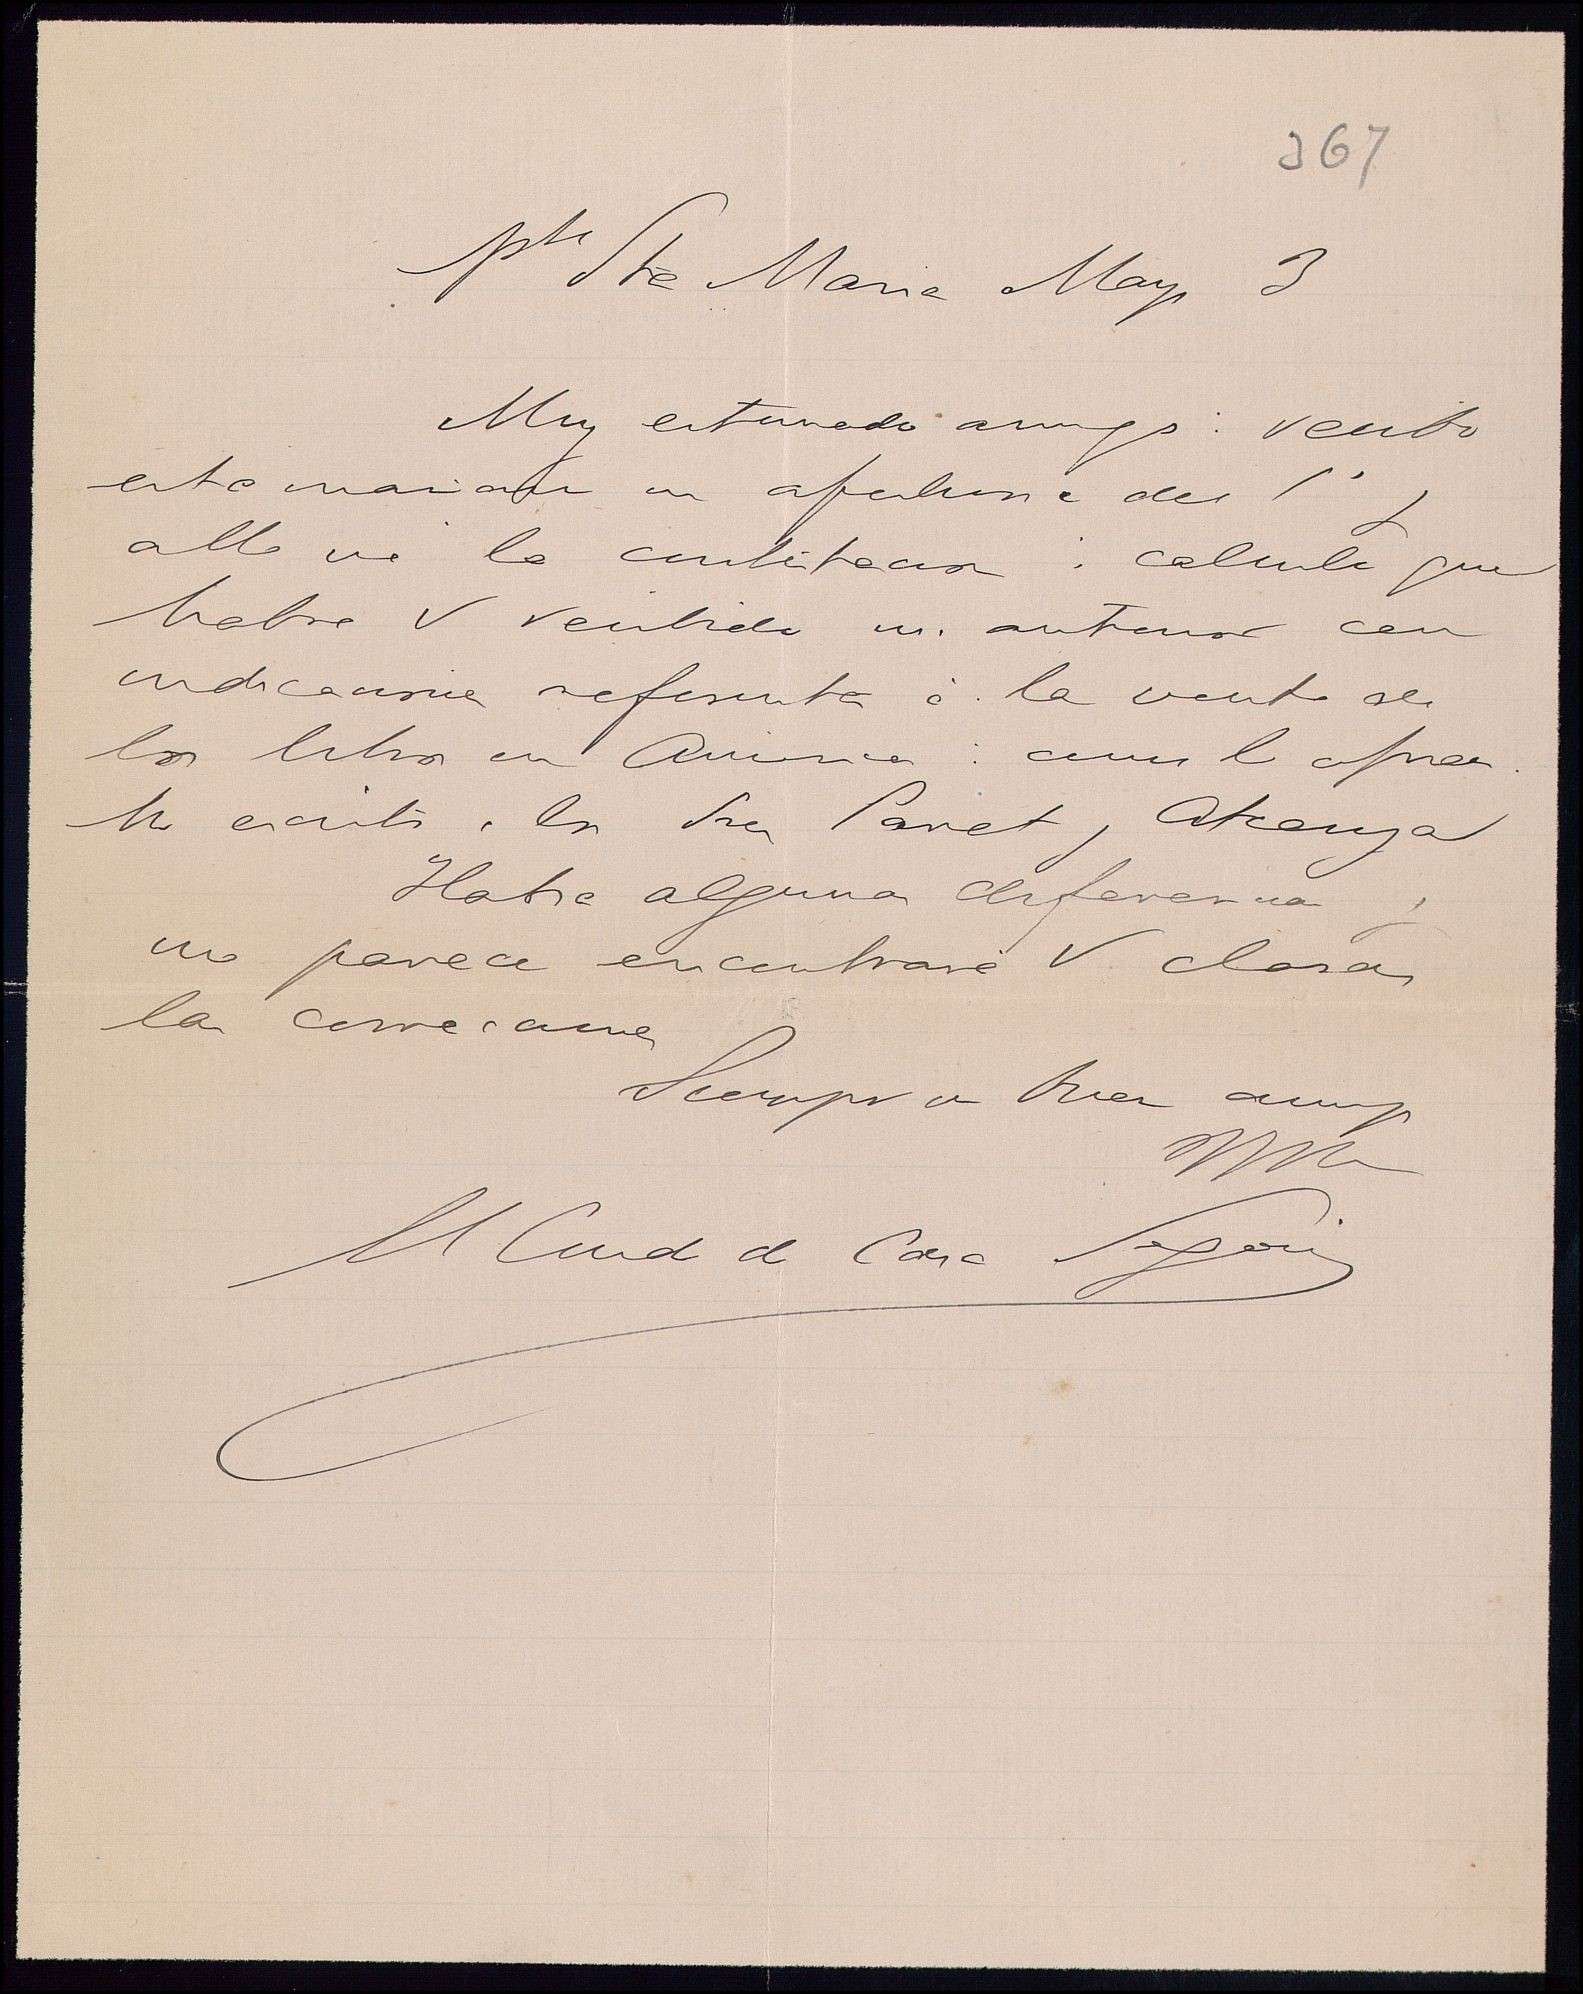 367
Pto Sta Maria Mayo 3
Muy estimado amigo: recibo
esta mañana su afectuosa del 1º y
allá vá la contestacion: calculo que
habrá V recibido mi anterior con
indicaciones referentes á la venta de
los libros en America: como le ofrecí
he escrito á los Sres Paret y
Habrá algunas diferencias y
me parece encontrará V claras
las correcciones
Siempre su buen amigo
El Conde de Casa Segovia